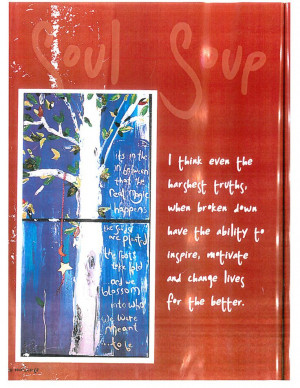 Soul Soup
it's in the
in between
that the
real magic
happens
the seeds
are planted
the past
are
and we
blossom
into who
we were
meant
...to be
I think even the
harshest truths,
when broken down
have the ability to
inspire, motivate
and change lives
for the better.